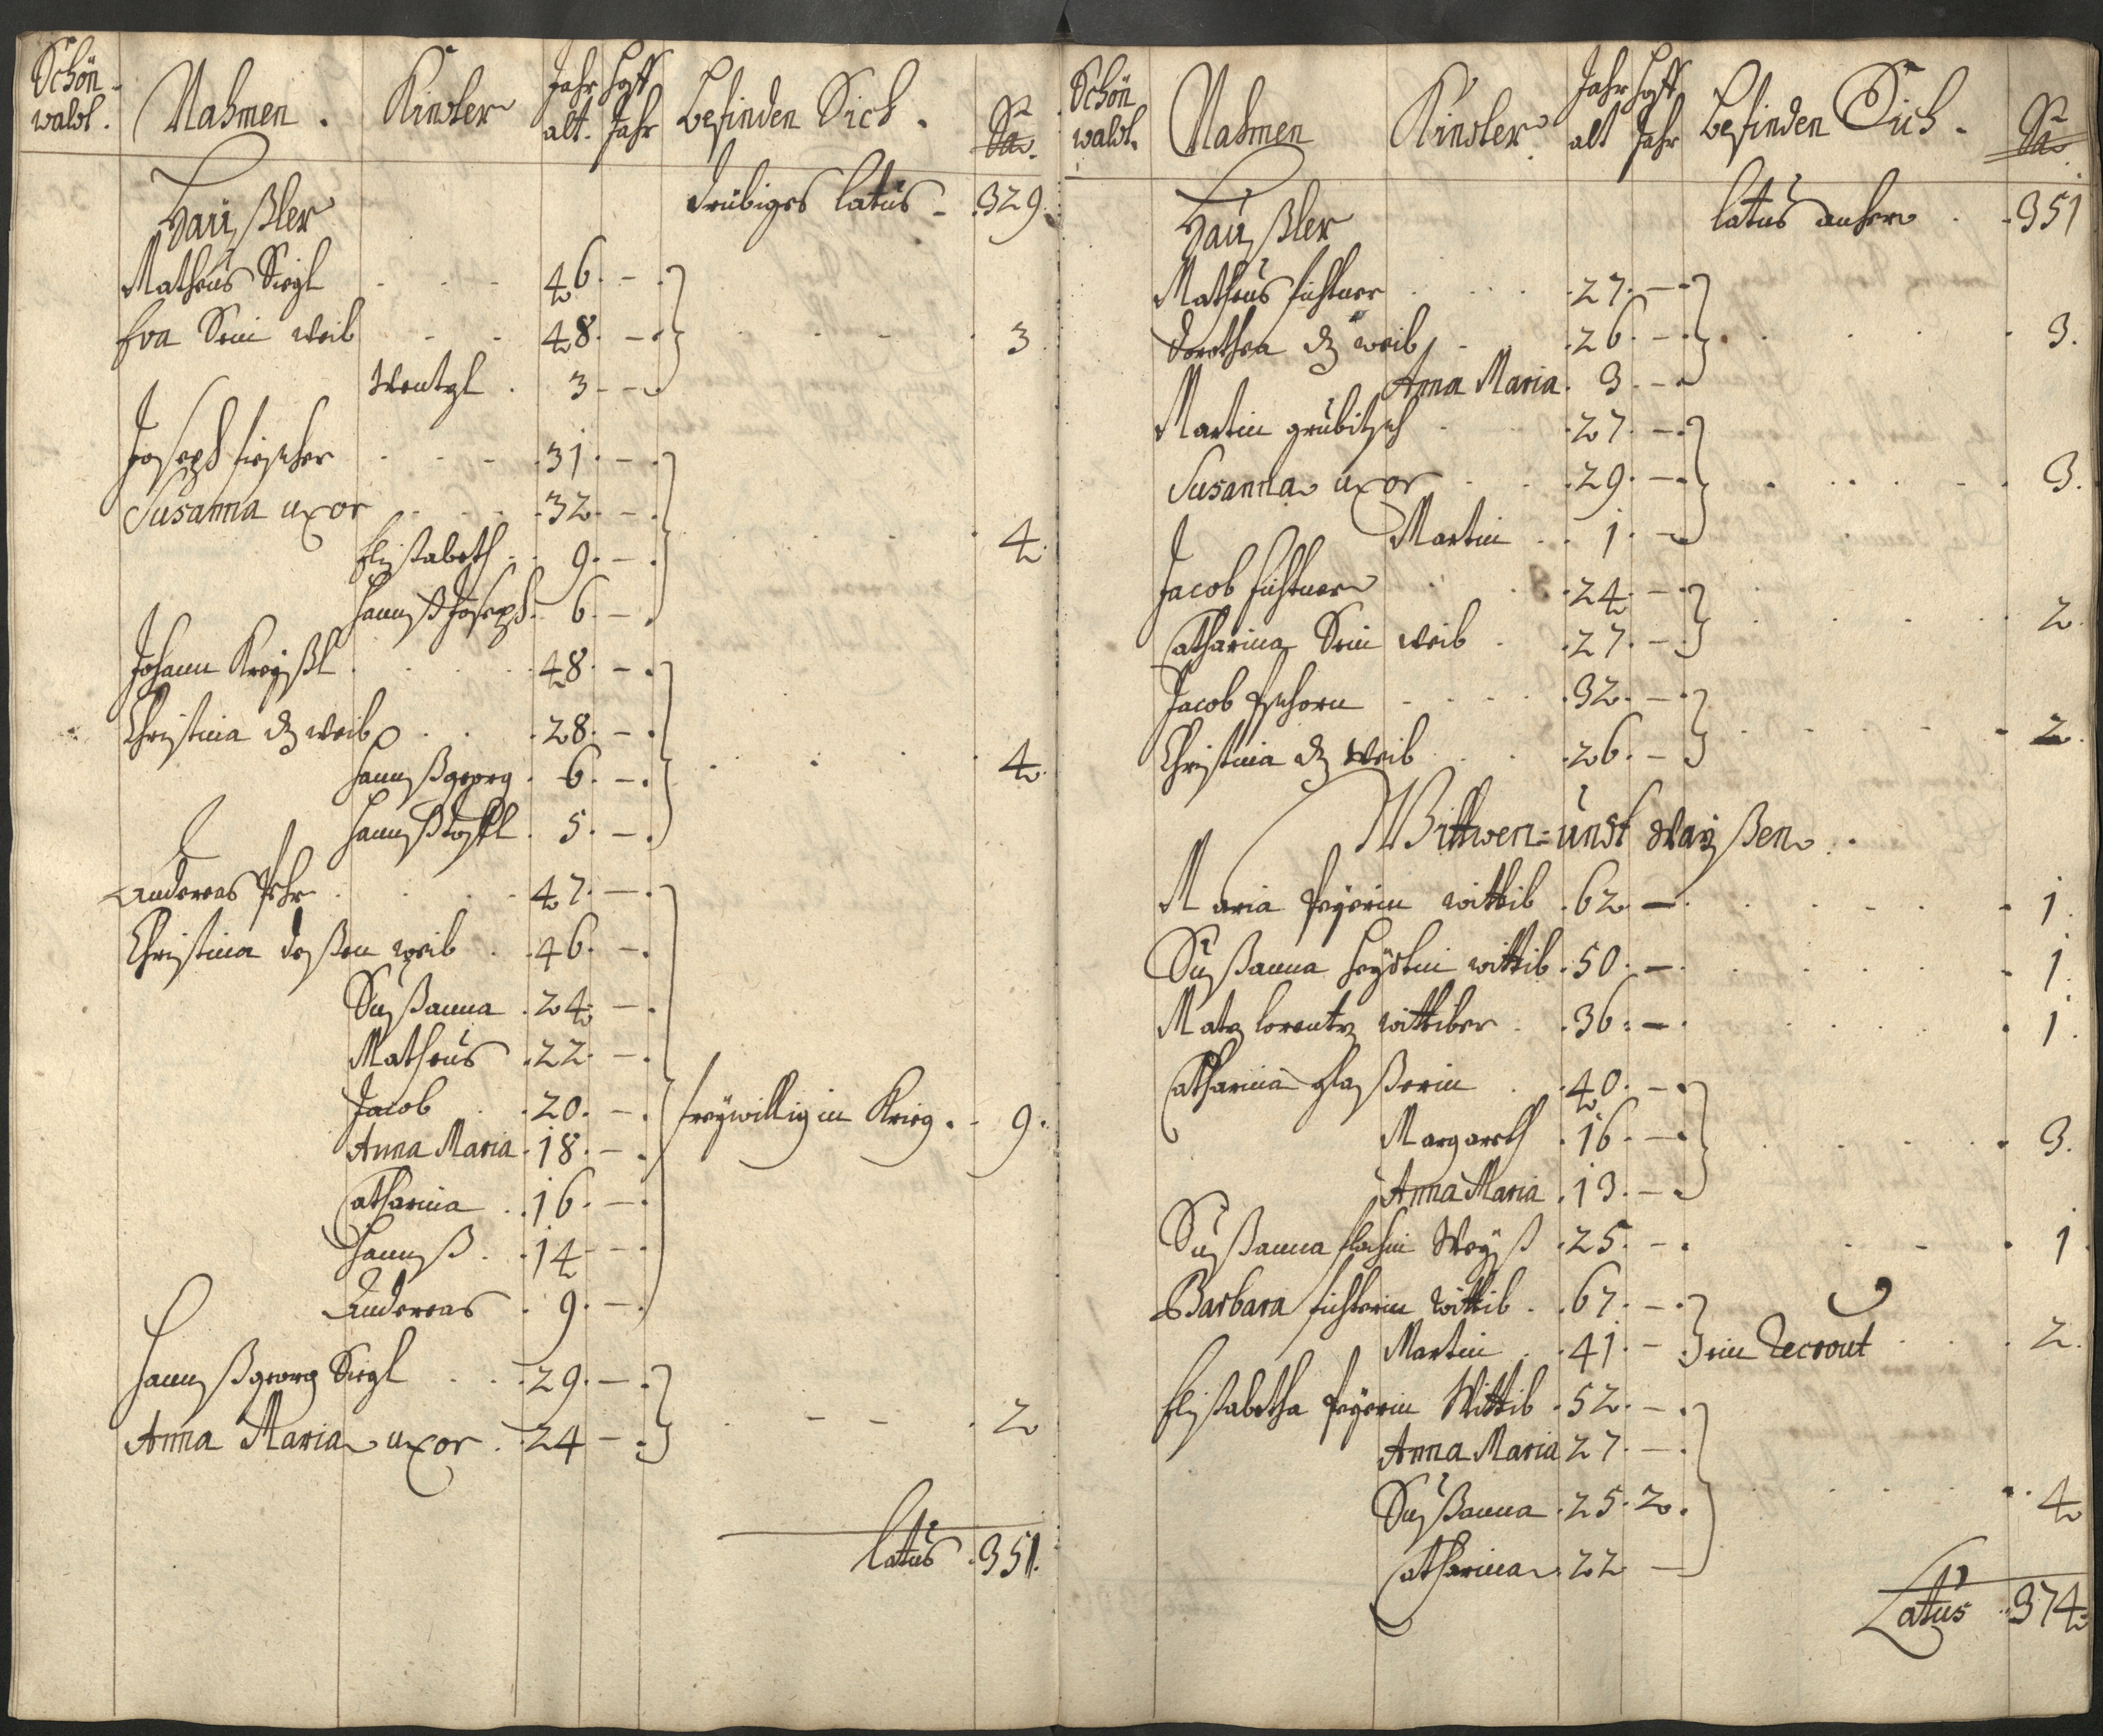 Schön-
waldt. Nahmen. Kinder Jahr alt. Hoff Jahr befinden Sich. Sa.
Häußler drübiges latus - 329.
Matheus Siegl 46. -
Eva Sein weib 48. - 3
Wentzl. 3 -
Joseph fischer 31. -
Susanna uxor 32. -
Elisabeth 9. - 4.
Hannß Joseph 6. -
Johann Kreyßl 48. -
Christina dß weib 28. -
Hannß georg 6. - 4.
Hannß 5. -
Andereas 47. -
Christina deßen weib 46. -
Sußanna 24. -
Matheus 22. -
Jacob 20. - freywillig in Krieg. - 9.
Anna Maria 18. -
Catharina 16. -
Hannß 14 -
Andereas 9. -
Hannß georg Siegl 29. -
Anna Maria uxor. 24 - 2
latus 351.
Schön
waldt. Nahmen Kinder Jahr alt Hoff Jahr befinden Sich. Sa
Häußler latus anhero 351
Matheus fichtner 27. -
Dorothea dß weib 26. - 3.
Anna Maria. 3. -
Martin grübitsch 27. -
Susanna uxor 29. - 3.
Martin 1. -
Jacob fichtner 24. -
Catharina Sein weib 27. - 2
Jacob 32. -
Christina dß Weib 26. - 2.
Wittwen = undt Wayßen.
Maria wittib 62 - 1.
Sußanna wittib 50. - 1.
Matz lorentz wittiber 36. - 1.
Catharina glaßerin 40. -
Margareth 16. - 3.
Anna Maria 13. -
Sußanna Weyß 25. - 1.
Barbara fichtnerin Wittib 67. -
Martin 41. - ein Recrout 2.
Elisabetha Wittib 52. -
Anna Maria 27 -
Sußanna 25. 2. 4
Catharina 22 -
Latus 374.